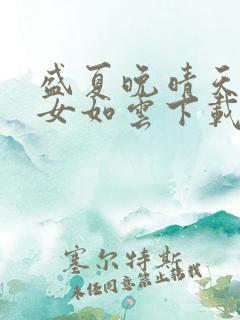 盛夏晚晴天
女如雲下載
塞尔特斯
未经同意禁止转载